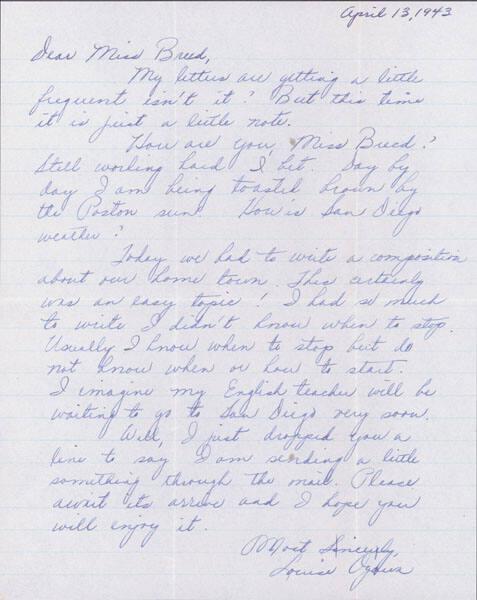 April 13, 1943
Dear Miss Breed,
My letters are getting a little
frequent isn't it? But this time
it is just a little note.
How are you, Miss Breed?
Still working hard I bet. Day by
day I am being toasted brown by
the Poston sun. How is San Diego
weather?
Today we had to write a composition
about our home town. This certainly
was an easy topic! I had so much
to write I didn't know when to stop.
Usually I know when to stop but do
not know when or how to start.
I imagine my English teacher will be
waiting to go to San Diego very soon.
Well, I just dropped you a
line to say I am sending a little
something through the mail. Please
await its arrive and I hope you
will enjoy it.
Most Sincerely,
Louise Ogawa